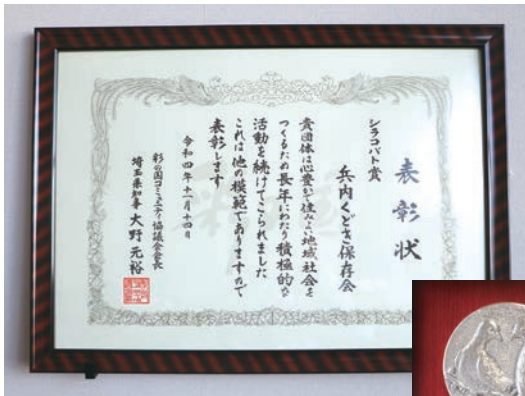 表彰状
シラコバト賞
兵内くどき保存会
貴団体は心豊かで住みよい地域社会を
つくるため長年にわたり積極的な
活動を続けてこられました
これは他の模範でありますので
表彰します
令和四年十一月十四日
彩の国コミュニティ協議会会長
埼玉県知事 大野元裕